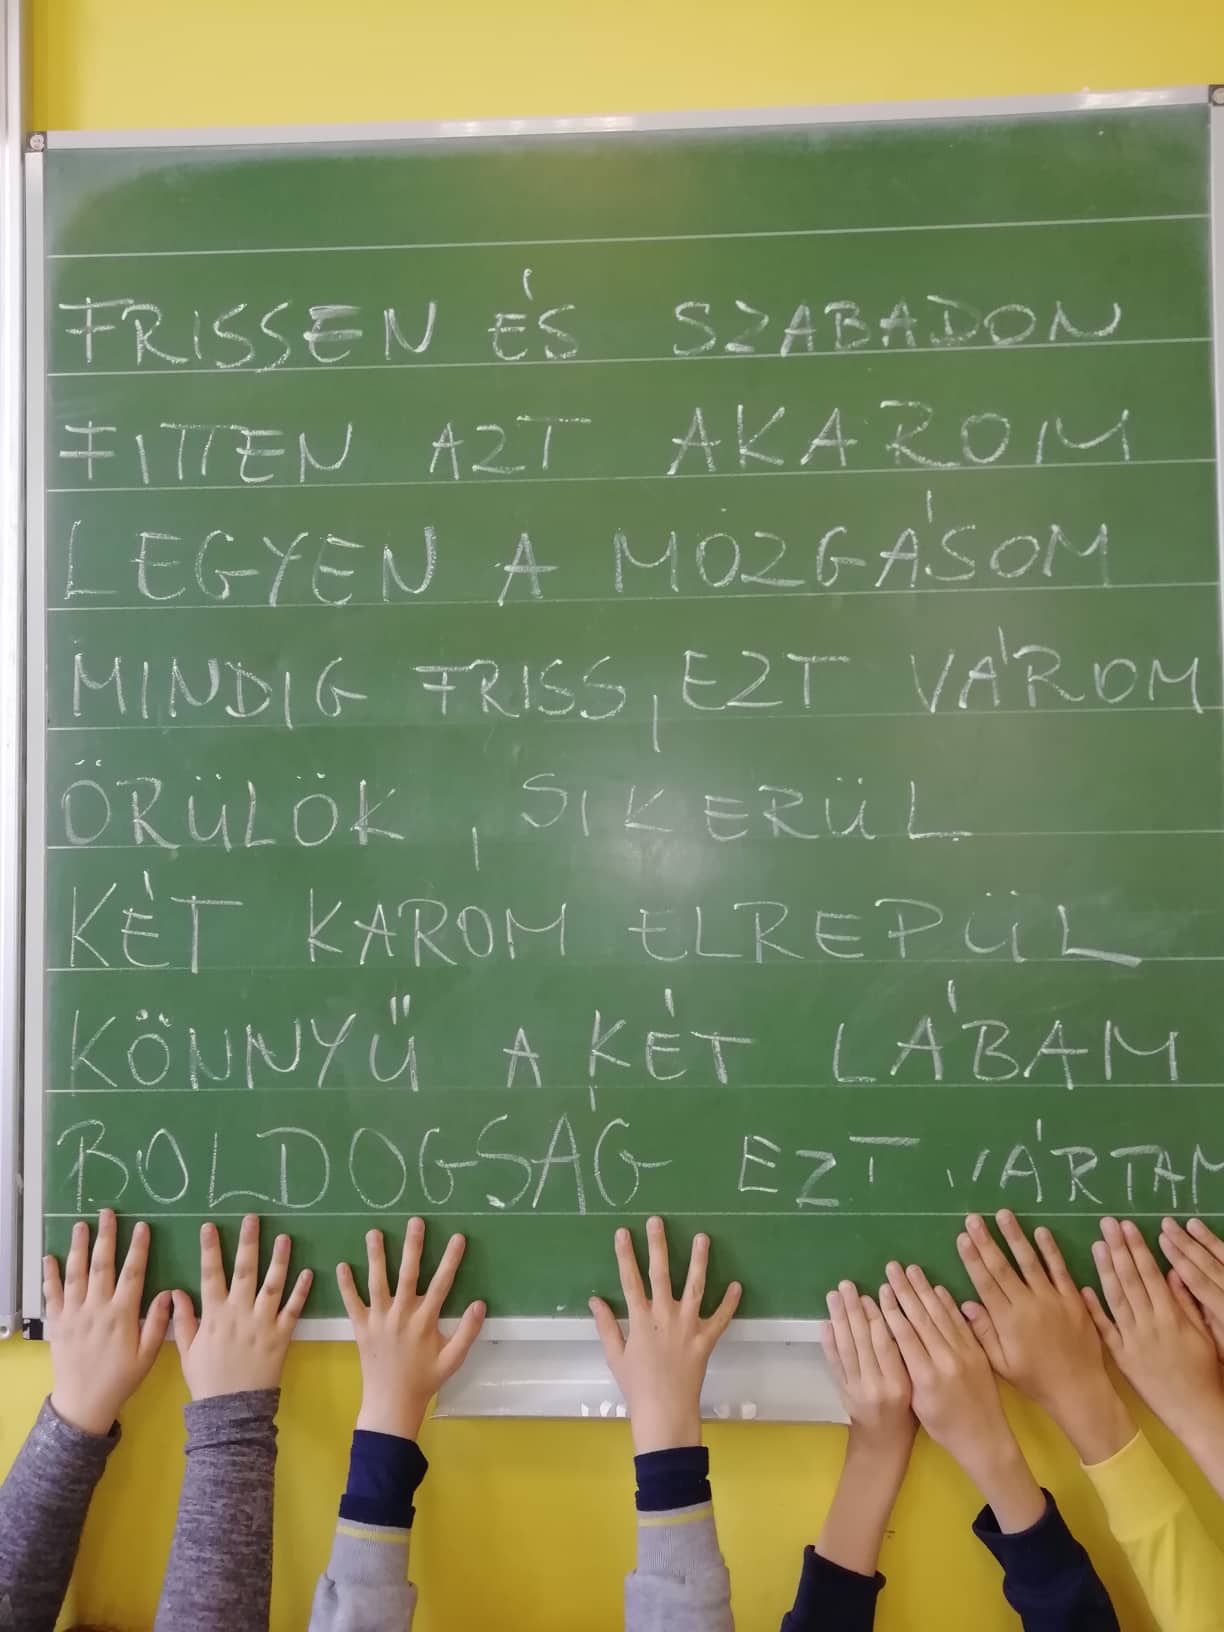 FRISSEN ÉS SZABADON
FITTEN AZT AKAROM
LEGYEN A MOZGÁSOM
MINDIG FRISS, EZT VÁROM
ÖRÜLÖK, SIKERÜL
KÉT KAROM ELREPÜL
KÖNNYŰ A KÉT LÁBAM
BOLDOGSÁG EZT VÁRTAM